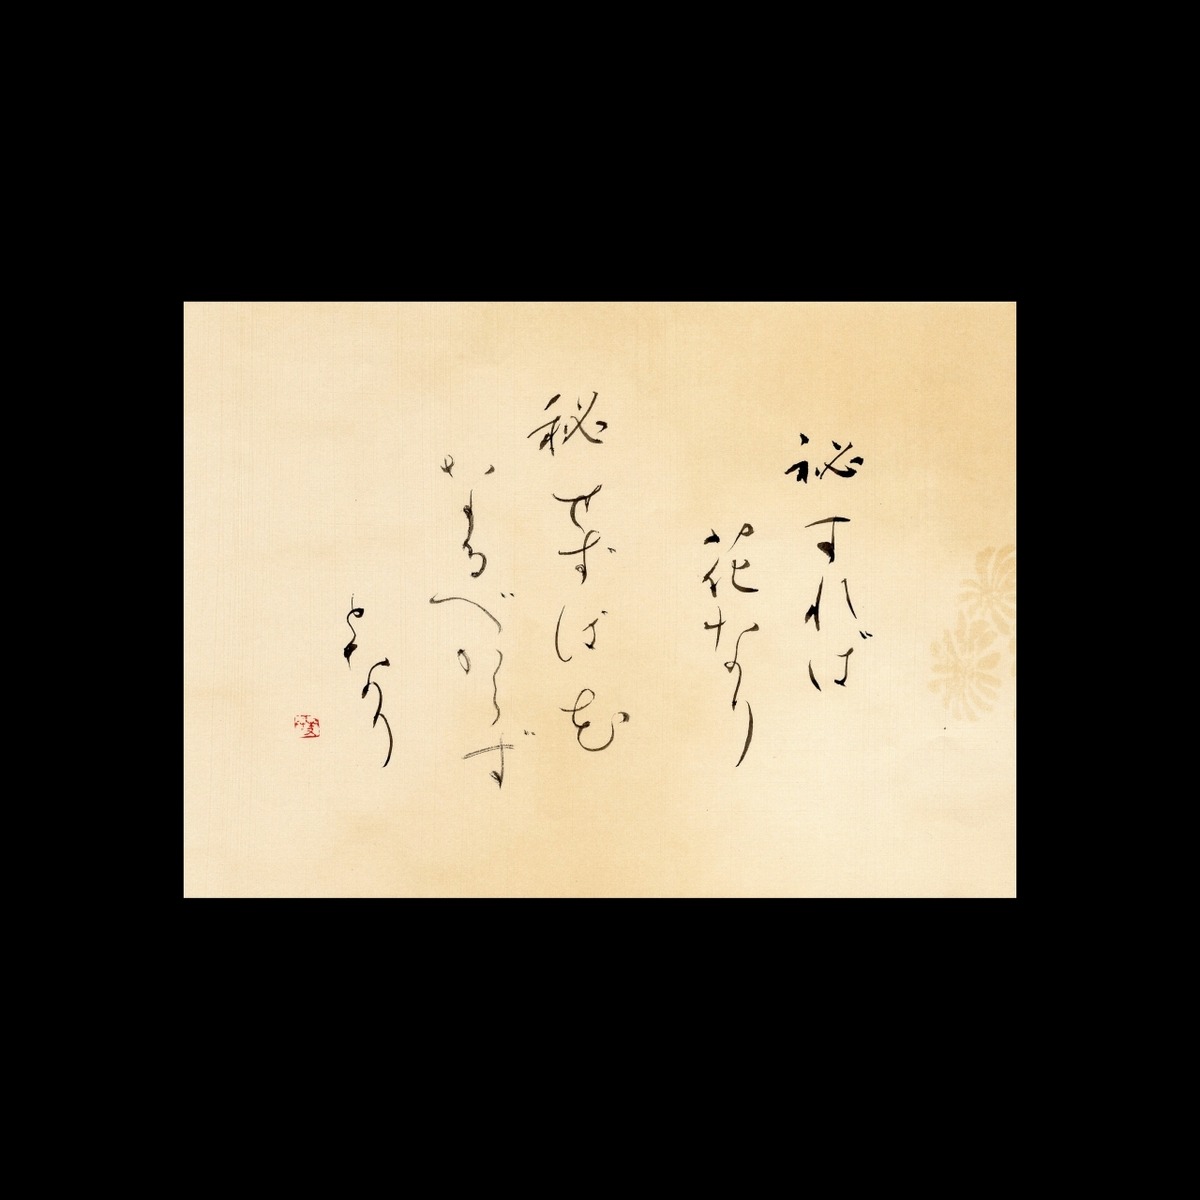 祕すれば
花なり
秘せずは花
なるべからず
となり